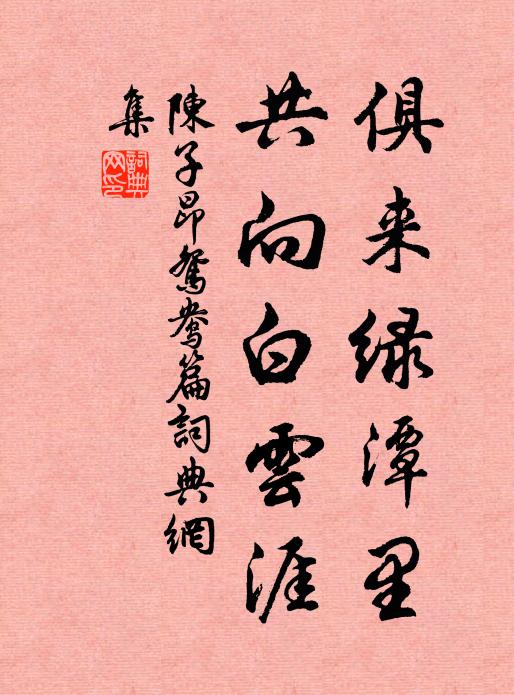 俱来緑潭里
共向白雲涯
陳子昂鴛鴦篇詞典網
集
詞典网印